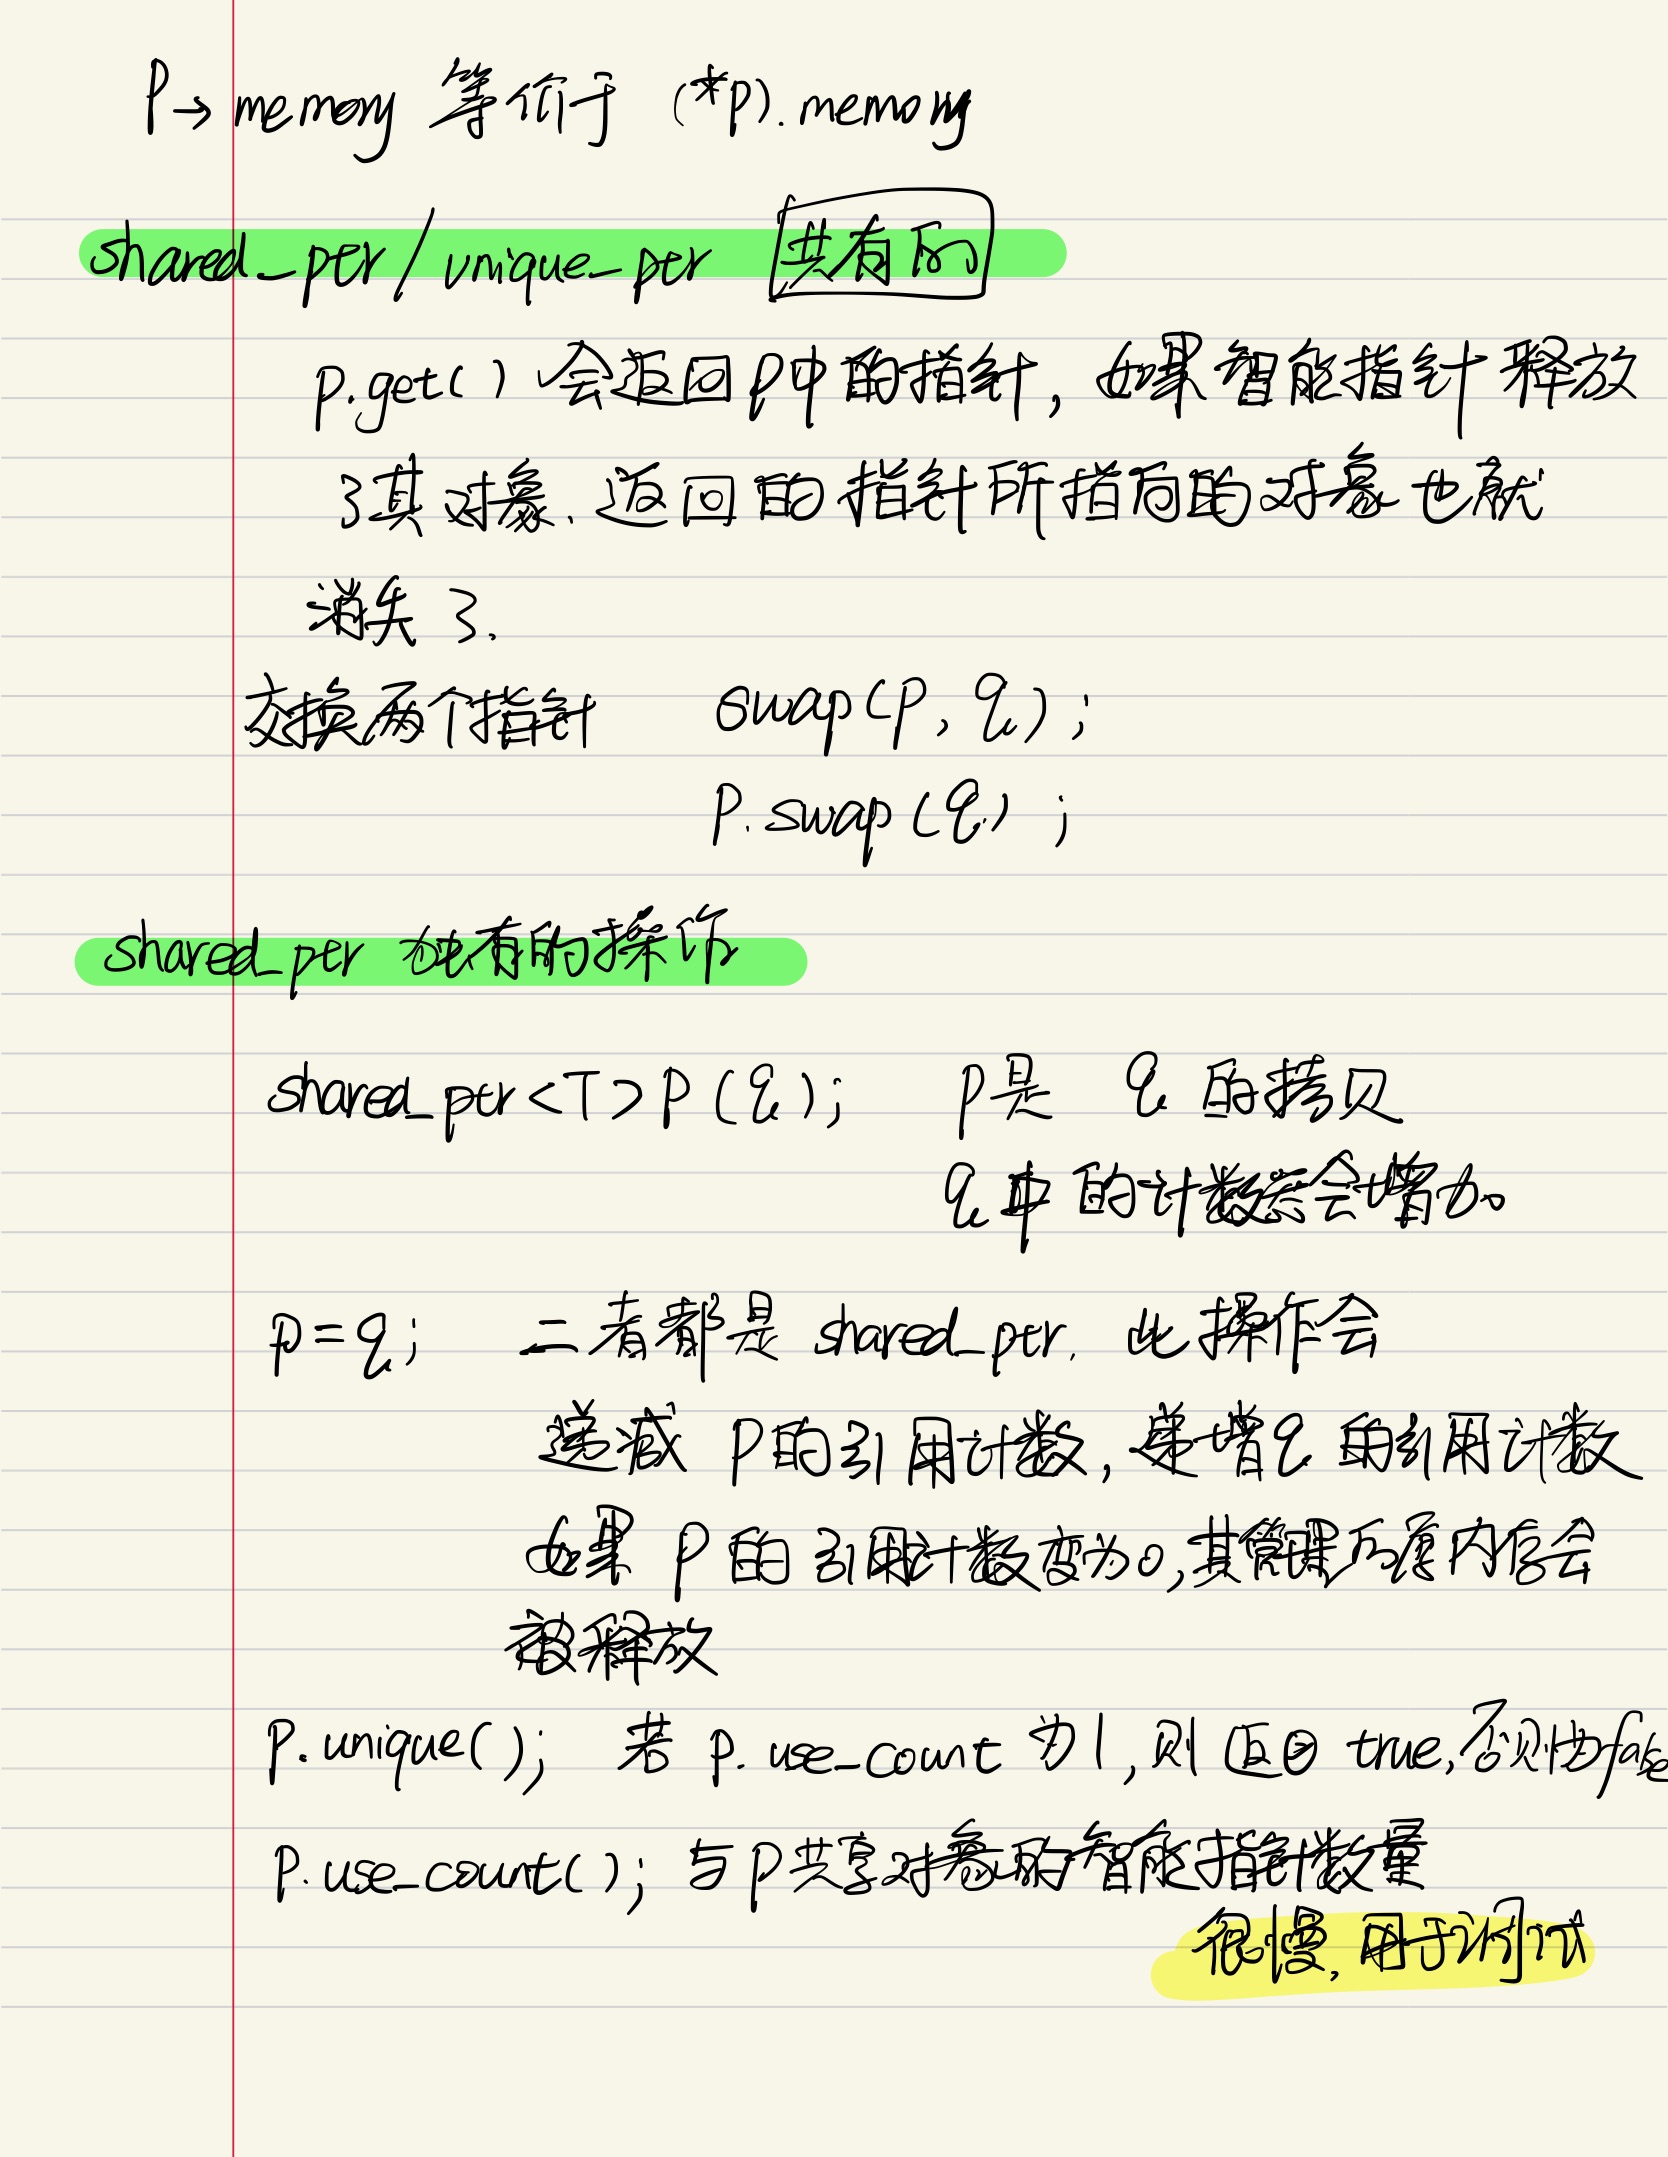 p→memory 等价于 (*p).memory
shared_ptr/unique_ptr 共有的
p.get() 会返回p中的指针, 如果智能指针释放
了其对象、返回的指针所指向的对象也就
消失了.
交换两个指针 swap(p, q);
p.swap(q);
shared_ptr 独有的操作
shared_ptr<T>p(q); p是 q 的拷贝
q中的计数器会增加。
p=q; 二者都是 shared_ptr. 此操作会
递减 p的引用计数, 递增q的引用计数
如果 p 的引用计数变为0,其管理的原内存会
被释放
p.unique(); 若 p.use_count 为1,则返回 true,否则为false
p.use_count(); 与p共享对象的智能指针数量
很慢, 用于调试